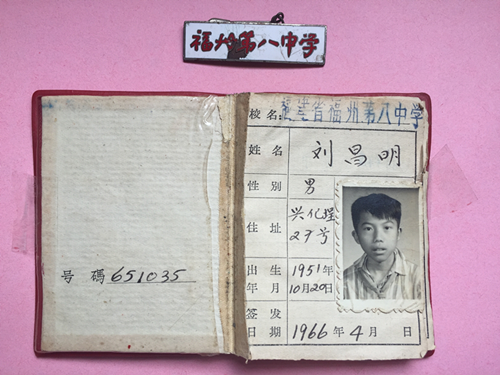 福州第八中学
号 碼 651035
校名: 福建省福州第八中学
姓名 刘昌明
性别 男
住址 兴化埕
27号
出生 1951年
年月 10月20日
签发
日期 1966年4月 日